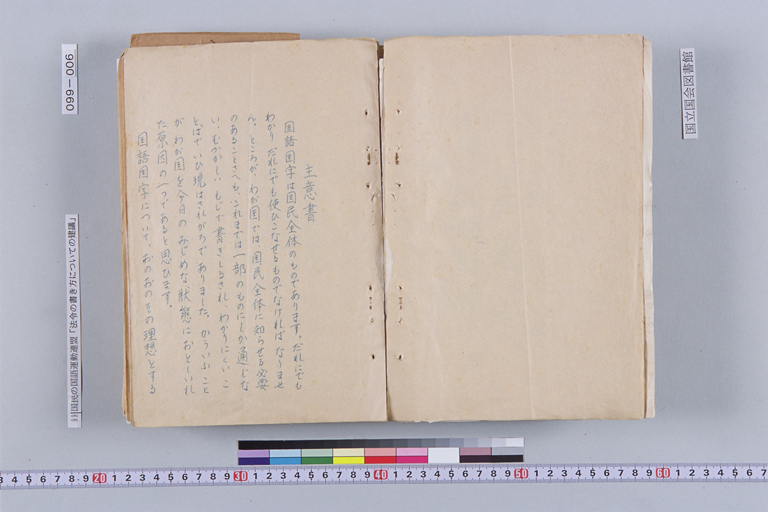 主意書
国語国字は国民全体のものであります。だれにでも
わかり だれにでも使ひこなせるものでなければ なりませ
ん。ところが、わが国では、国民全体に知らせる必要
のあることさへも、これまでは一部のものにしか通じな
い、むづかしい もじで書きしるされ、わかりにくい こ
とばで いひ現はされがちで ありました。かういふ こと
が わが国を今日の みじめな状態に おとしいれ
た原因の一つであると思ひます。
国語国字について、おのおのその理想とする
国立国会図書館
099-006
国民の国語運動連盟「法令の書き方についての建議」
3 4 5 6 7 8 9 20 1 2 3 4 5 6 7 8 9 30 1 2 3 4 5 6 7 8 9 40 1 2 3 4 5 6 7 8 9 50 1 2 3 4 5 6 7 8 9 60 1 2 3 4 5 6 7